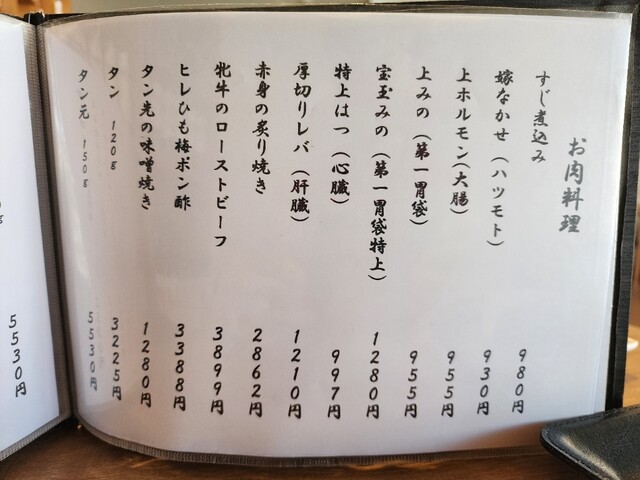 お肉料理
すじ煮込み 980円
嫁なかせ（ハツモト） 930円
上ホルモン（大腸） 955円
上みの（第一胃袋） 955円
宝玉みの（第一胃袋特上） 1280円
特上はつ（心臓） 997円
厚切りレバ（肝臓） 1210円
赤身の炙り焼き 2862円
牝牛のローストビーフ 3899円
ヒレひも梅ポン酢 3388円
タン先の味噌焼き 1280円
タン 120g 3225円
タン元 150g 5530円
5530円